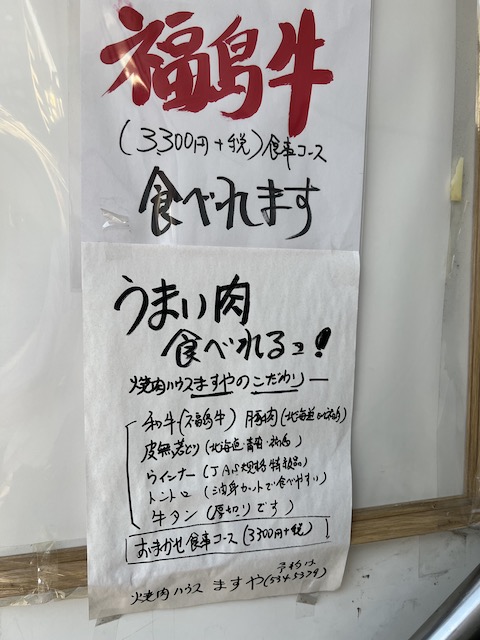 福島牛
(3,300円+税)食事コース
食べれます
うまい肉
食べれるヨ!
焼肉ハウスますやのこだわり
和牛(福島牛) 豚肉(北海道
皮無若どり(北海道・青森・福島)
ウィンナー(JAS規格特級品)
トントロ(油身カットで食べやすい)
牛タン(厚切りです)
おまかせ食事コース(3300円+税)
焼肉ハウス ますや(534-5329)
予約は